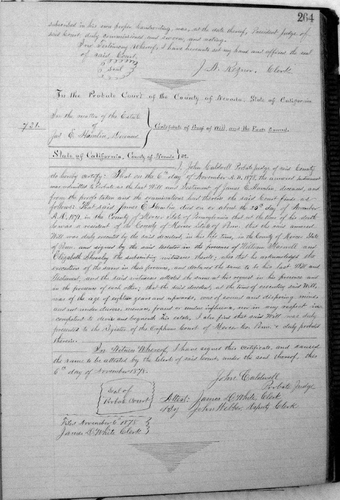 264
subscribed in his own proper handwriting, was, at the date thereof, President Judge of
said Court duly commissioned and sworn, and acting.
In Testimony Whereof, I have hereunto set my hand and affixed the seal
of said Court.
seal
J. H. Clerk
In the Probate Court of the County of Nevada, State of California
In the matter of the Estate
of
721
Jas. C. Deceased
Certificate of Proof of Will, and the Facts found.
State of California, County of Nevada ss
I, John Caldwell Probate Judge of said County
do hereby certify: That on the 6th day of November A.D. 1878, the annexed instrument
was admitted to Probate as the last Will and Testament of James C. deceased, and
from the proofs taken and the examinations had therein the said Court finds as
follows: That said James C. died on or about the day of
A.D. 1871, in the County of State of Pennsylvania that at the time of his death
he was a resident of the County of State of Penn. that the said annexed
Will was duly executed by the said decedent in his life time, in the County of State of
Penn. and signed by the said testator in the presence of William and
Elizabeth the subscribing witnesses thereto; who did acknowledge the
execution of the same in their presence, and declared the same to be his last Will and
Testament, and the said witnesses attested the same at his request in his presence and
in the presence of each other; that the said decedent, at the time of executing said Will,
was of the age of eighteen years and upwards, was of sound and disposing mind,
and not under duress, menace, fraud or undue influence, nor in any respect
competent to devise and bequeath his estate. I also find that said Will was duly
presented to the Register of the Orphans Court of County Penn. & duly probated
therein.
In Witness Whereof, I have signed this certificate, and caused
the same to be attested by the Clerk of said Court, under the seal thereof, this
6th day of November 1878.
John Caldwell
Probate Judge
Seal of
Probate Court
Attest: James D. White Clerk
By John Webber Deputy Clerk
Filed November 6th 1878
James D. White Clerk